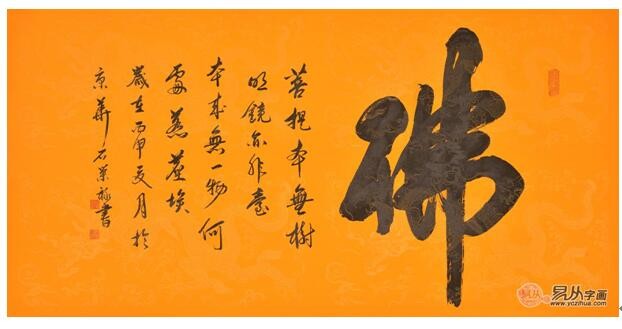 佛
菩提本無樹
明鏡亦非臺
本來無一物何
處惹塵埃
歲在丙申夏月於
京華石榮禄書
易从字画
www.yczihua.com